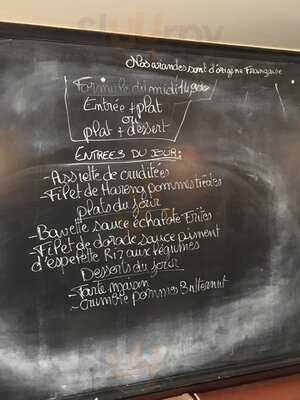 Nos viandes sont d'origine Française
Formule du midi 14,90€
Entrée + plat
ou
plat + dessert
ENTREES DU JOUR:
- Assiette de cruditées
- Filet de Hareng pommes tièdes
plats du jour
- Bavette sauce échalote Frites
- Filet de dorade sauce piment
d'espelette Riz aux légumes
Desserts du jour
- Tarte maison
- Crumble pommes Butternut